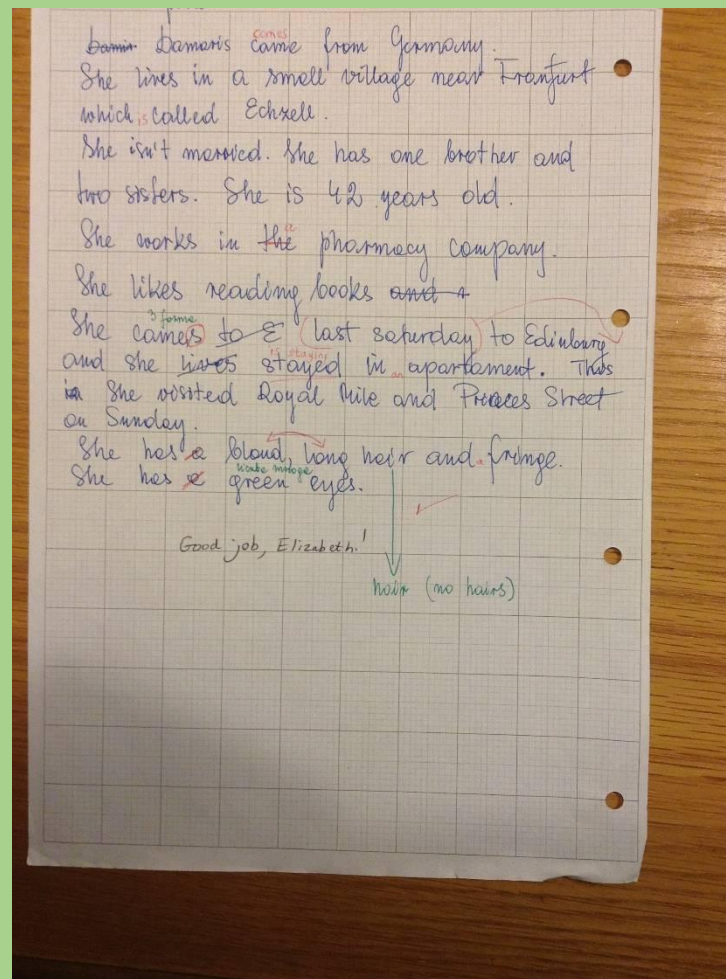 comes
Damir Damaris came from Germany.
She lives in a small village near Franfurt
which is called Echzell.
She isn't married. She has one brother and
two sisters. She is 42 years old.
She works in the a pharmacy company.
She likes reading books and
3 forma
She cames to E (last saturday) to Edinburg
is staying
and she lives stayed in an apartament. This
in She visited Royal Mile and Princes Street
on Sunday.
She has a blond, long hair and a fringe.
liczba mnoga
She has a green eyes.
Good job, Elizabeth!
hair (no hairs)